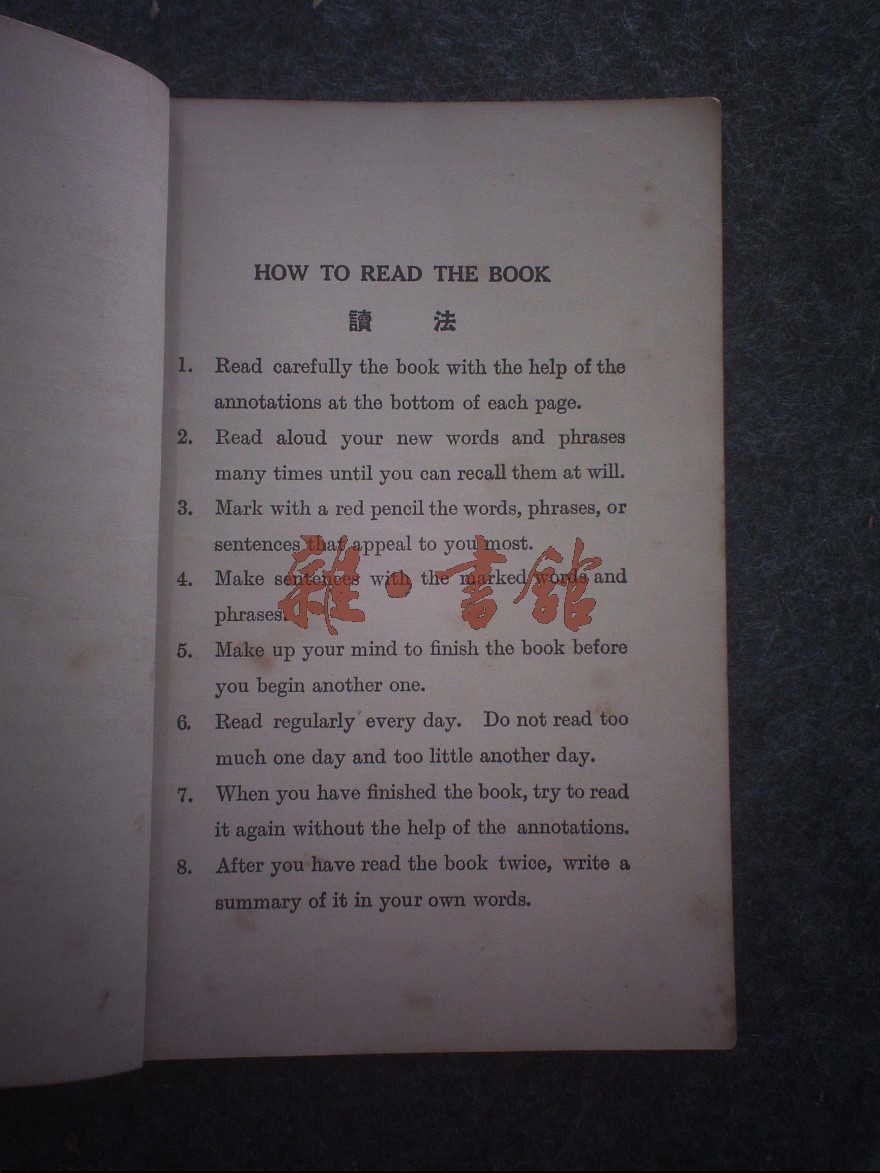 HOW TO READ THE BOOK
讀 法
1. Read carefully the book with the help of the
annotations at the bottom of each page.
2. Read aloud your new words and phrases
many times until you can recall them at will.
3. Mark with a red pencil the words, phrases, or
sentences that appeal to you most.
4. Make sentences with the marked words and
phrases.
5. Make up your mind to finish the book before
you begin another one.
6. Read regularly every day. Do not read too
much one day and too little another day.
7. When you have finished the book, try to read
it again without the help of the annotations.
8. After you have read the book twice, write a
summary of it in your own words.
雜·書館